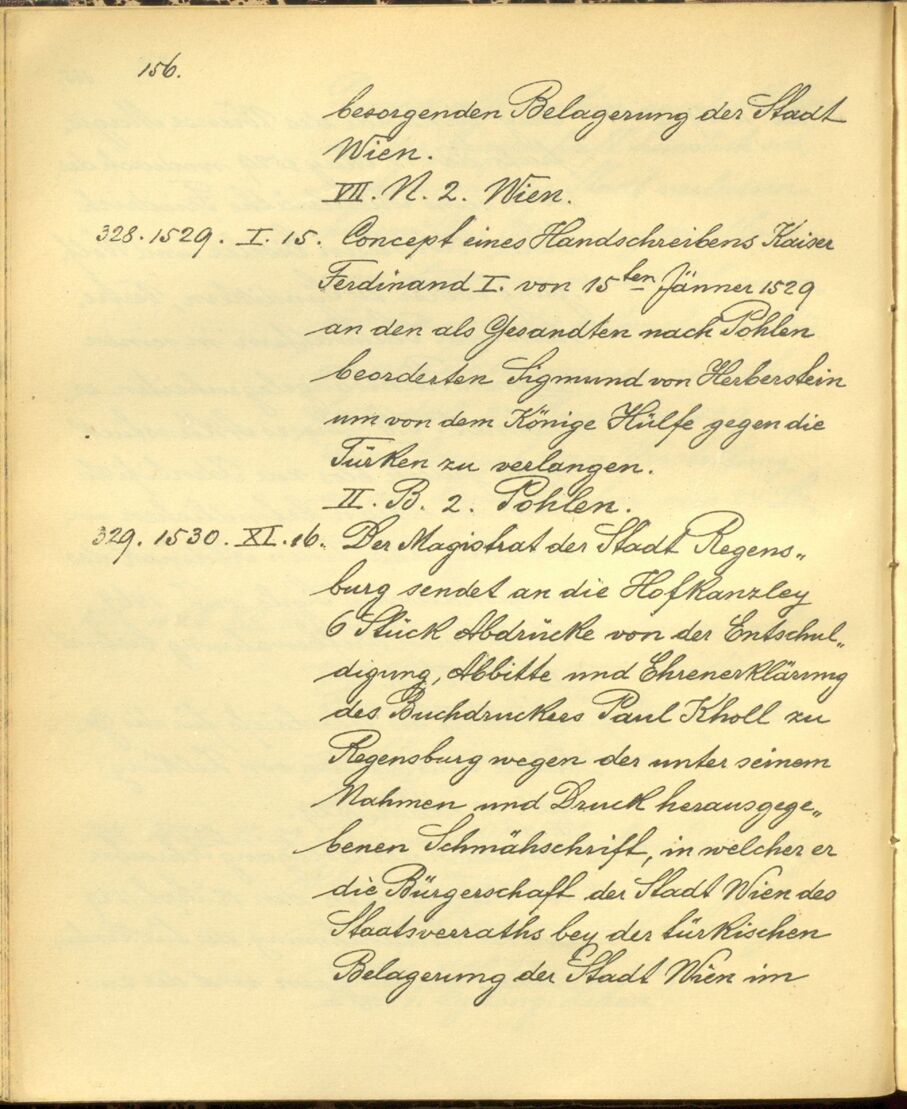 156.
besorgenden Belagerung der Stadt
Wien.
VII. N. 2. Wien.
328. 1529. I. 15. Concept eines Handschreibens Kaiser
Ferdinand I. von 15ten Jänner 1529
an den als Gesandten nach Pohlen
beorderten Sigmund von Herberstein
um von dem Könige Hülfe gegen die
Türken zu verlangen.
II. B. 2. Pohlen.
329. 1530. XI. 16. Der Magistrat der Stadt Regens„
burg sendet an die Hofkanzley
6 Stück Abdrücke von der Entschul„
digung, Abbitte und Ehrenerklärung
des Buchdruckers Paul Kholl zu
Regensburg wegen der unter seinem
Nahmen und Druck herausgege„
benen Schmähschrift, in welcher er
die Bürgerschaft der Stadt Wien des
Staatsverraths bey der türkischen
Belagerung der Stadt Wien im